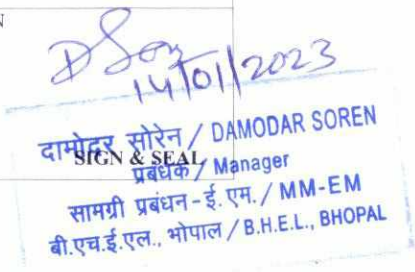 N
D Son
14/01/2023
दामोदर सोरेन / DAMODAR SOREN
SIGN & SEAL
प्रबंधक / Manager
सामग्री प्रबंधन - ई. एम. / MM-EM
बी.एच.ई.एल., भोपाल / B.H.E.L., BHOPAL